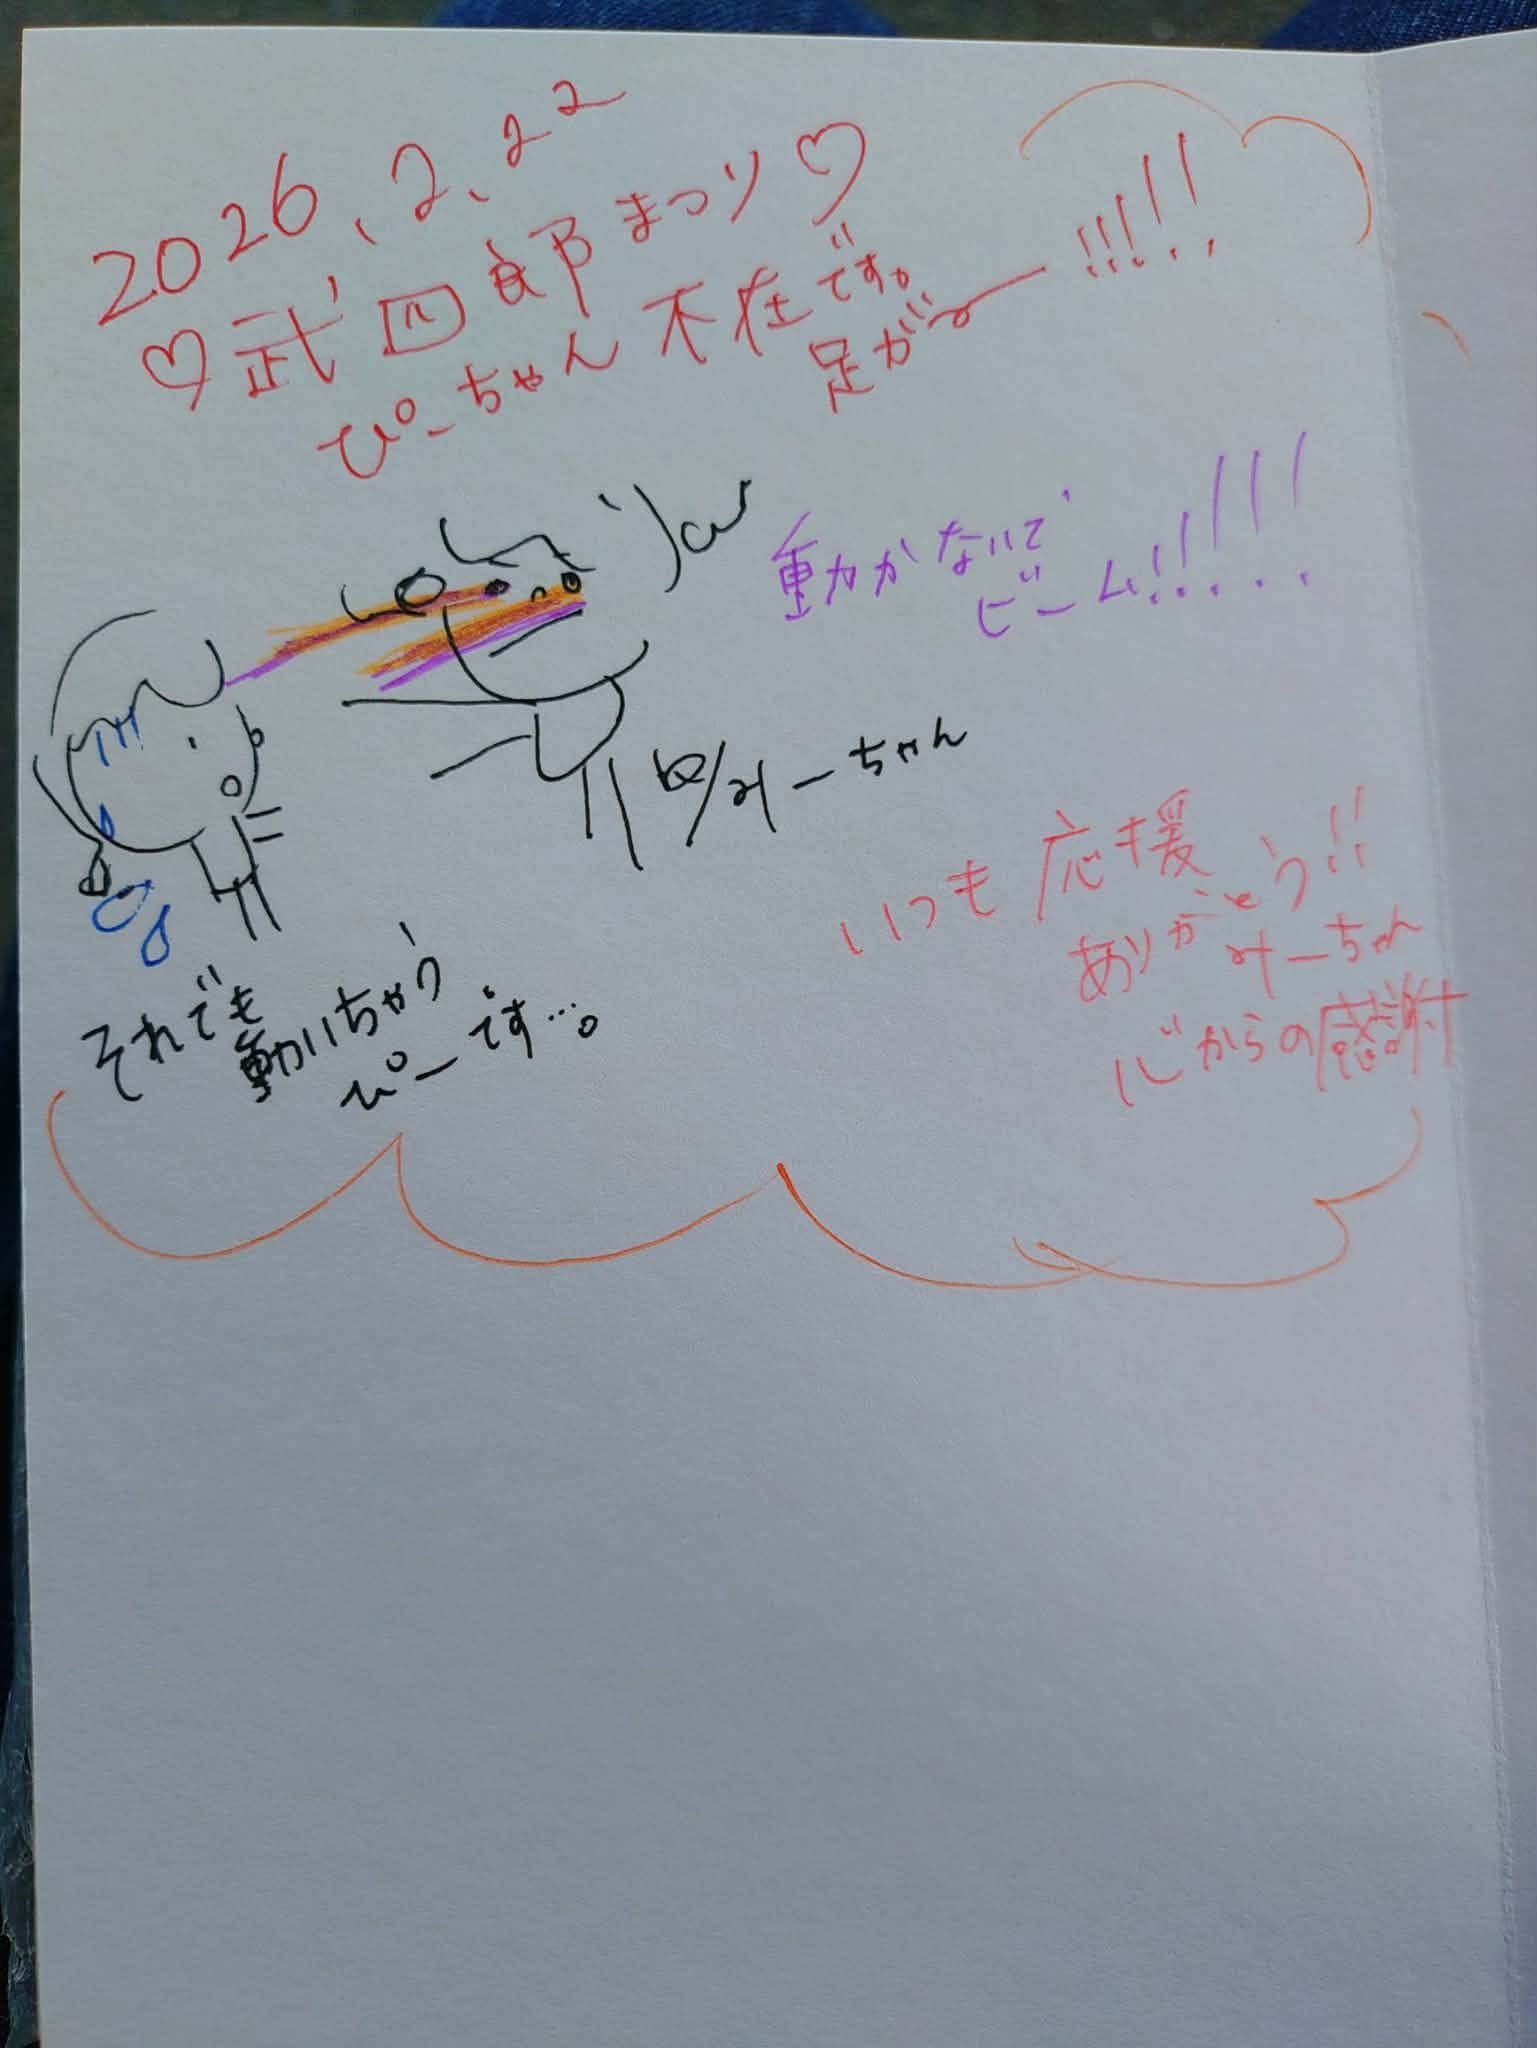 2026、2、22
♡武四郎まつり♡
ぴーちゃん不在です。
足がぁー!!!!!
動かないで
ビーム!!!!!
みーちゃん
いつも応援
ありがとう!!
みーちゃん
心からの感謝
それでも
動いちゃう
ぴーです…。